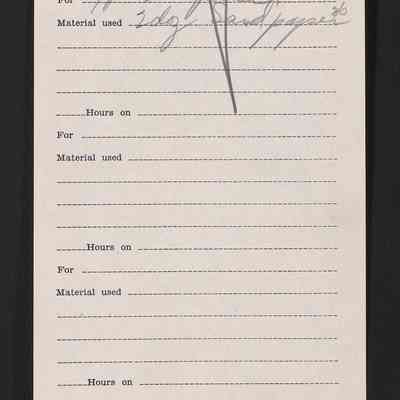 For
Material used 2 doz. sand paper 36
Hours on
For
Material used
Hours on
For
Material used
Hours on